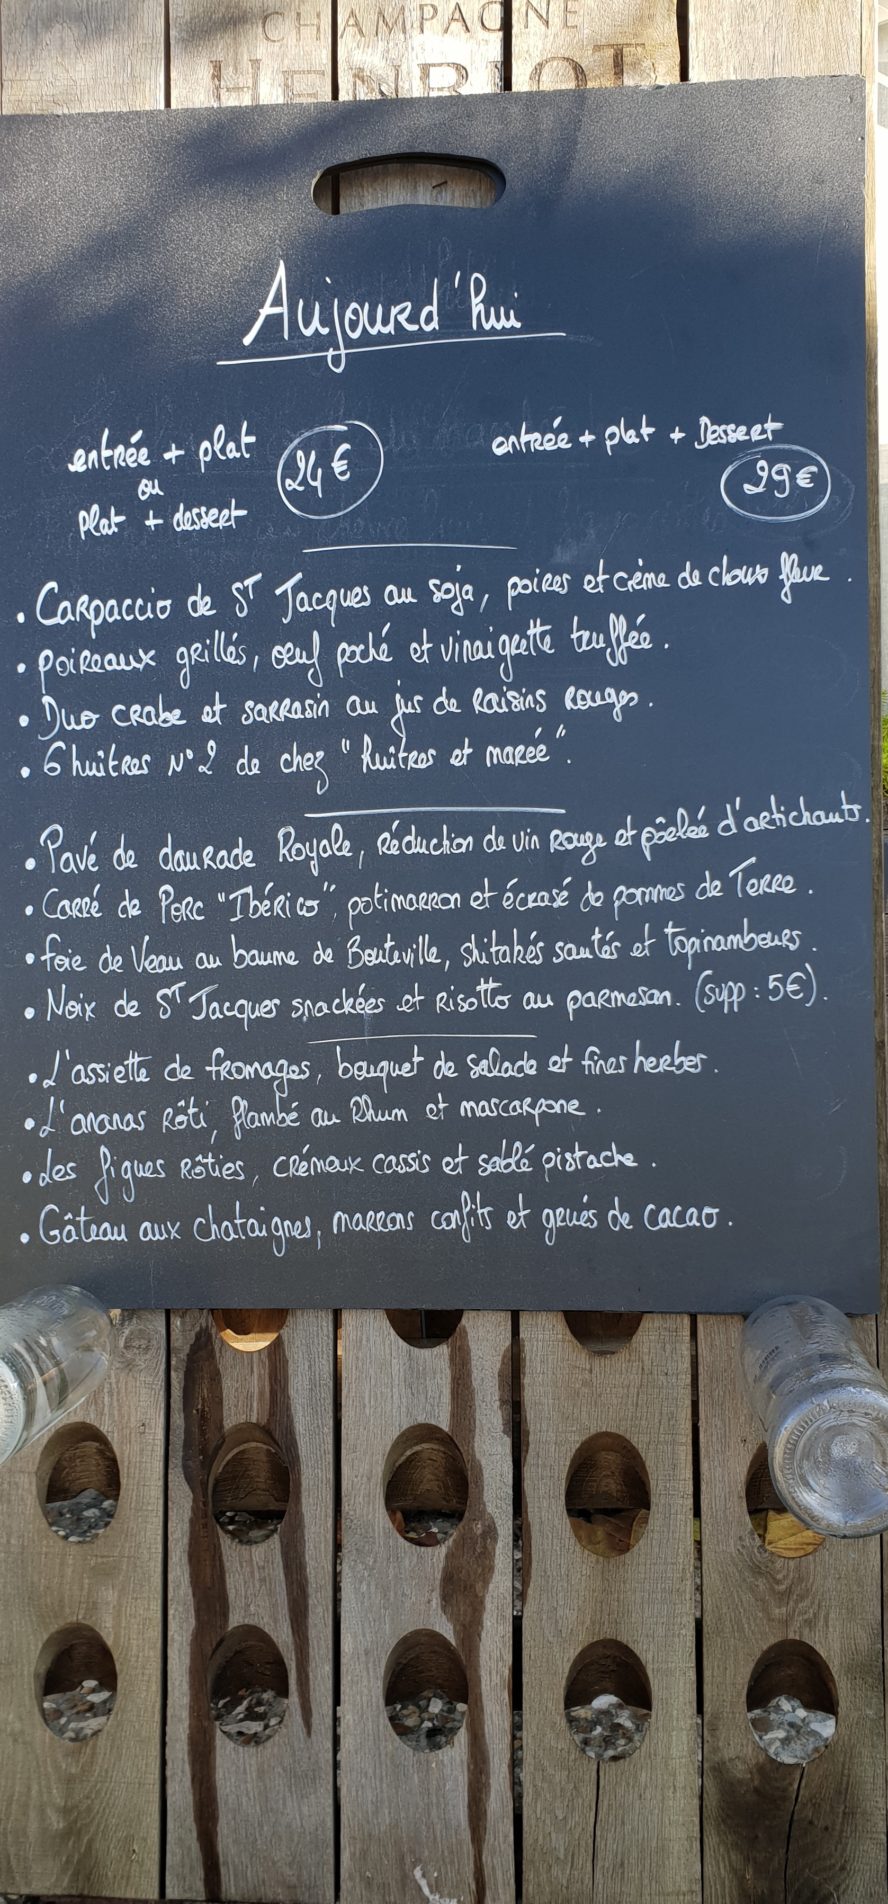 CHAMPAGNE
HENRIOT
Aujourd'hui
entrée + plat
ou
plat + dessert
24€
entrée + plat + Dessert
29€
• Carpaccio de ST Jacques au soja, poires et crème de choux fleur.
• poireaux grillés, oeuf poché et vinaigrette truffée.
• Duo crabe et sarrasin au jus de raisins rouges.
• 6 huitres N°2 de chez "huitres et marée".
• Pavé de daurade Royale, réduction de vin rouge et pôelée d'artichauts.
• Carré de Porc "Ibérico", potimarron et écrasé de pommes de Terre.
• foie de Veau au baume de Bouteville, shitakés sautés et topinambours.
• Noix de ST Jacques snackées et Risotto au parmesan. (supp : 5€).
• L'assiette de fromages, bouquet de salade et fines herbes.
• L'ananas rôti, flambé au Rhum et mascarpone.
• Les figues rôties, crémeux cassis et sablé pistache.
• Gâteau aux chataignes, marrons confits et grués de cacao.